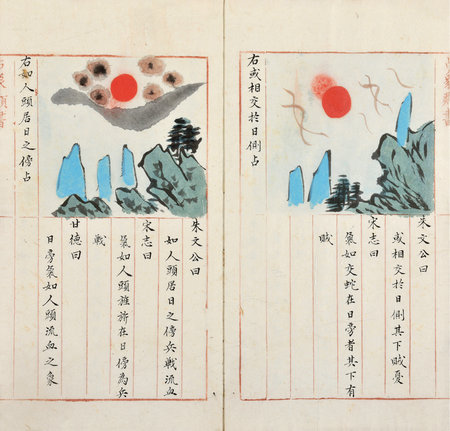 朱文公曰
或相交於日側其下賊憂
宋志曰
氣如交蛇在日旁者其下有
賊
右或相交於日側占
朱文公曰
如人頭居日之傍兵戰流血
宋志曰
氣如人頭在日傍為兵
戰
甘德曰
日旁氣如人頭流血之象
右如人頭居日之傍占